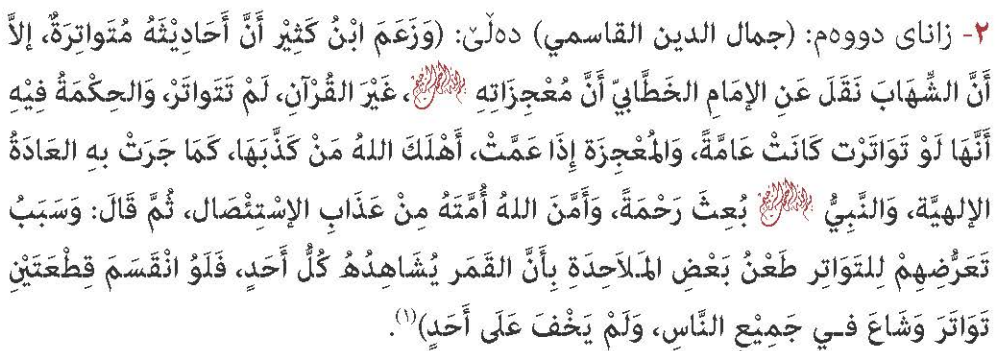 ٢- زانای دووەم: (جمال الدين القاسمي) دەڵێ: (وَزَعَمَ ابْنُ كَثِيْر أَنَّ أَحَادِيْثَهُ مُتَواتِرَةٌ، إلاَّ
أَنَّ الشِّهَابَ نَقَلَ عَنِ الإمَامِ الخَطَّابِيّ أَنَّ مُعْجِزَاتِهِ، غَيْرَ القُرْآنِ، لَمْ تَتَواتَرْ، وَالحِكْمَةُ فِيْهِ
أَنَّهَا لَوْ تَوَاتَرْت كَانَتْ عَامَّةً، وَالمُعْجِزَة إِذَا عَمَّتْ، أَهْلَكَ اللهُ مَنْ كَذَّبَهَا، كَمَا جَرَتْ بِهِ العَادَةُ
الإلهيَّة، وَالنَّبِيُّ بُعِثَ رَحْمَةً، وَأَمَّنَ اللهُ أُمَّتَهُ مِنْ عَذَابِ الإسْتِئْصَال، ثُمَّ قَالَ: وَسَبَبُ
تَعَرُّضِهِمْ لِلتَوَاتِر طَعْنُ بَعْضِ المَلاَحِدَةِ بِأَنَّ القَمَر يُشَاهِدُهُ كُلُّ أَحَدٍ، فَلَوُ انْقَسَمَ قِطْعَتَيْنِ
تَوَاتَرَ وَشَاعَ فـي جَمِيْعِ النَّاسِ، وَلَمْ يَخْفَ عَلَى أَحَدٍ)(١).